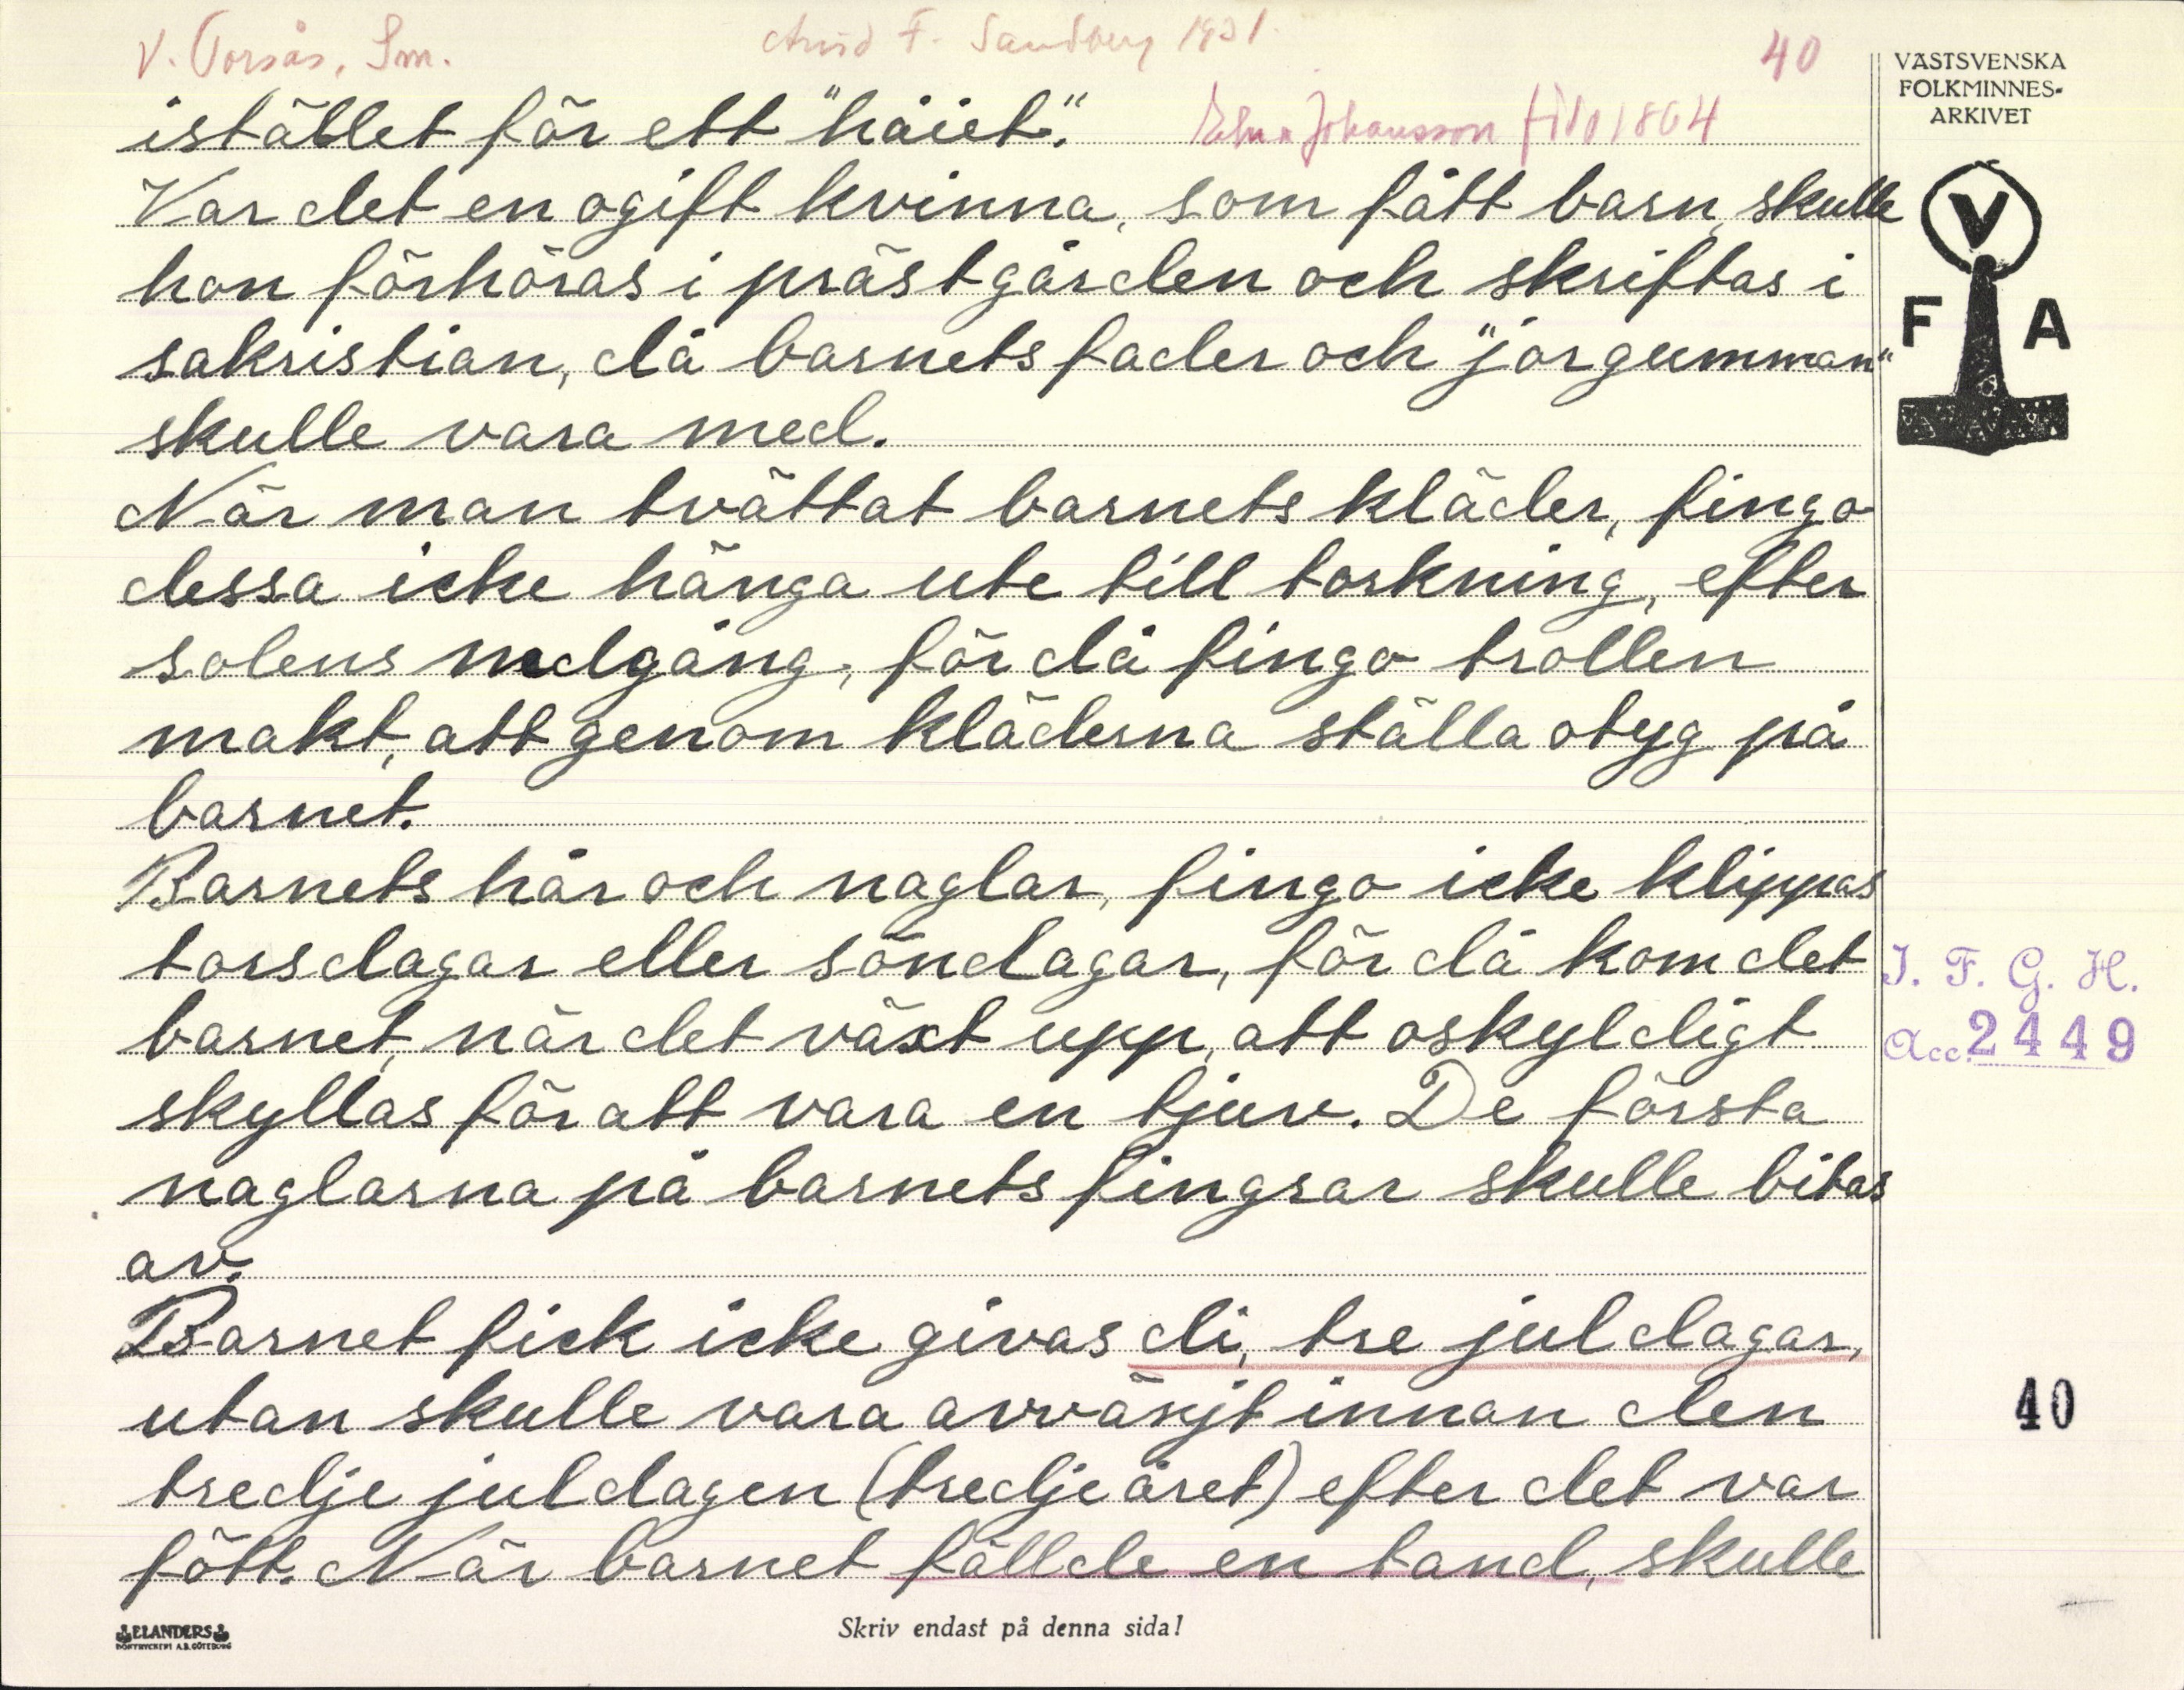 V. Torsås, Sm.
Arvid F. Sandberg 1931.
40
Johansson
istället för ett "håiet".
Var det en ogift kvinna, som fått barn, skulle
hon förhöras i prästgården och skriftas i
sakristian, då barnets fader och "jorgumman"
skulle vara med.
När man tvättat barnets kläder, fingo
dessa icke hänga ute till torkning, efter
solens nedgång, för då fingo trollen
makt, att genom kläderna ställa otyg på
barnet.
Barnets hår och naglar, fingo icke klippas
torsdagar eller söndagar, för då kom det
barnet, när det växt upp, att oskyldigt
skyllas för att vara en tjuv. De första
naglarna på barnets fingrar skulle bitas
av.
Barnet fick icke givas di, tre juldagar,
utan skulle vara avvänjt innan den
tredje juldagen (tredje året) efter det var
fött. När barnet fällde en tand, skulle
VÄSTSVENSKA
FOLKMINNES-
ARKIVET
V
F A
I. F. G. H.
Acc. 2449
40
ELANDERS
BOKTRYCKERI A.B. GÖTEBORG
Skriv endast på denna sida!